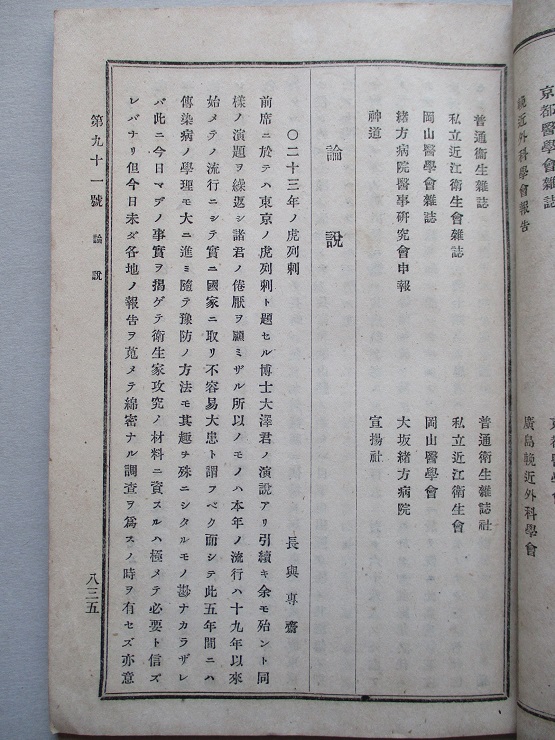 京都醫學會雜誌
輓近外科學會報告
廣島輓近外科學會
普通衞生雜誌 普通衞生雜誌社
私立近江衞生會雜誌 私立近江衞生會
岡山醫學會雜誌 岡山醫學會
緒方病院醫事研究會申報 大坂緒方病院
神道 宣揚社
論說
〇二十三年ノ虎列剌 長與專齋
前席ニ於テハ東京ノ虎列剌ト題セル博士大澤君ノ演說アリ引續キ余モ殆ント同
樣ノ演題ヲ繰返シ諸君ノ倦厭ヲ顧ミザル所以ノモノハ本年ノ流行ハ十九年以來
始メテノ流行ニシテ實ニ國家ニ取リ不容易大患ト謂フベク而シテ此五年間ニハ
傳染病ノ學理モ大ニ進ミ隨テ豫防ノ方法モ其趣ヲ殊ニシタルモノ尠ナカラザレ
バ此ニ今日マデノ事實ヲ揭ゲテ衞生家攻究ノ材料ニ資スルハ極メテ必要ト信ズ
レバナリ但今日未ダ各地ノ報告ヲ蒐メテ綿密ナル調查ヲ爲スノ時ヲ有セズ亦意
第九十一號 論說 八三五